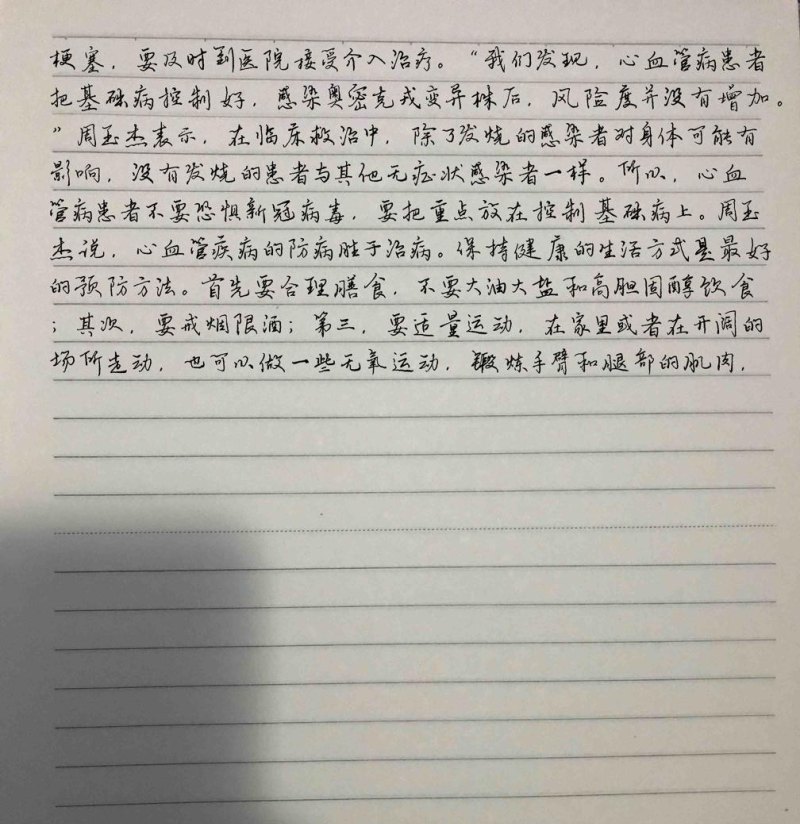 梗塞，要及时到医院接受介入治疗。“我们发现，心血管病患者
把基础病控制好，感染奥密克戎变异株后，风险度并没有增加。
”周玉杰表示，在临床救治中，除了发烧的感染者对身体可能有
影响，没有发烧的患者与其他无症状感染者一样。所以，心血
管病患者不要恐惧新冠病毒，要把重点放在控制基础病上。周玉
杰说，心血管疾病的防病胜于治病。保持健康的生活方式是最好
的预防方法。首先要合理膳食，不要大油大盐和高胆固醇饮食
；其次，要戒烟限酒；第三，要适量运动，在家里或者在开阔的
场所走动，也可以做一些无氧运动，锻炼手臂和腿部的肌肉，